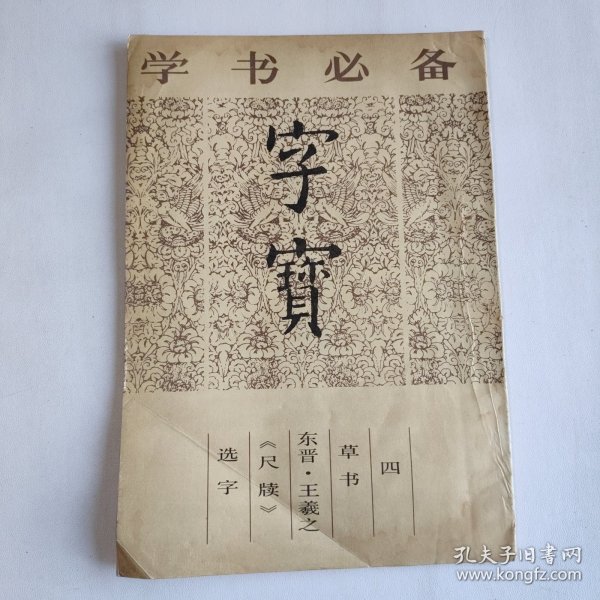 学书必备
字寶
四
草书
东晋·王羲之
《尺牍》
选字
孔夫子旧書网
www.kongfz.com